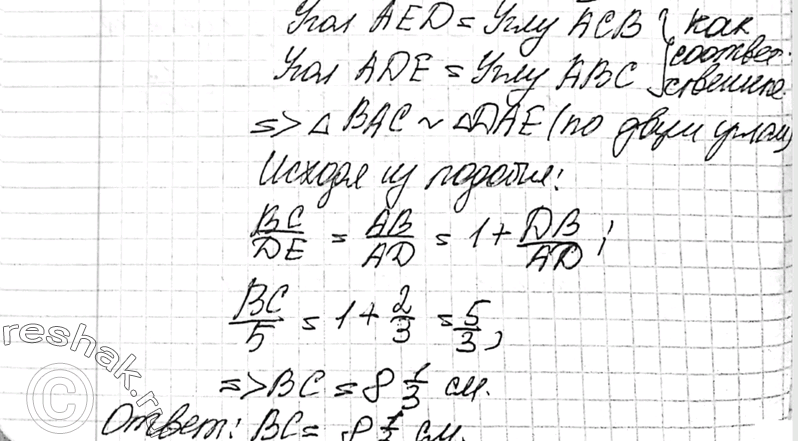 Угол AED = Углу ACB } как
Угол ADE = Углу ABC } соответственные.
=> △ BAC ~ △DAE (по двум углам)
Исходя из подобия:
BC/DE = AB/AD = 1 + DB/AD;
BC/5 = 1 + 2/3 = 5/3,
=> BC = 8 1/3 см.
Ответ: BC = 8 1/3 см.
reshak.ru